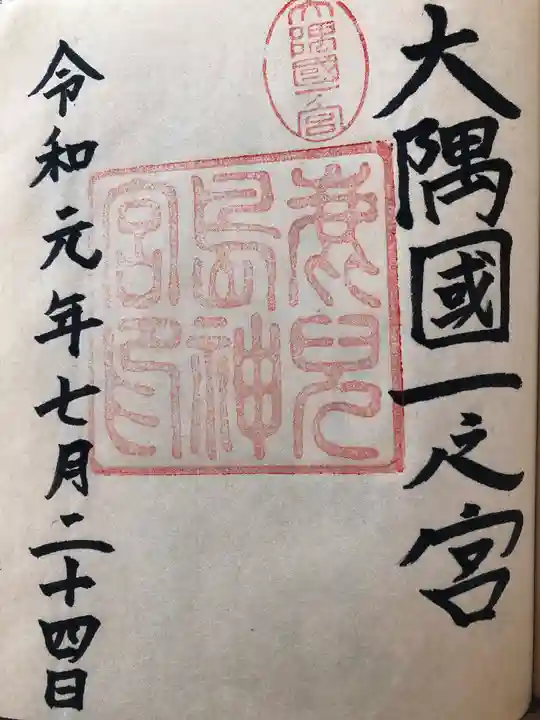 大隅國一之宮
大隅國一宮
鹿兒島神宮印
令和元年七月二十四日